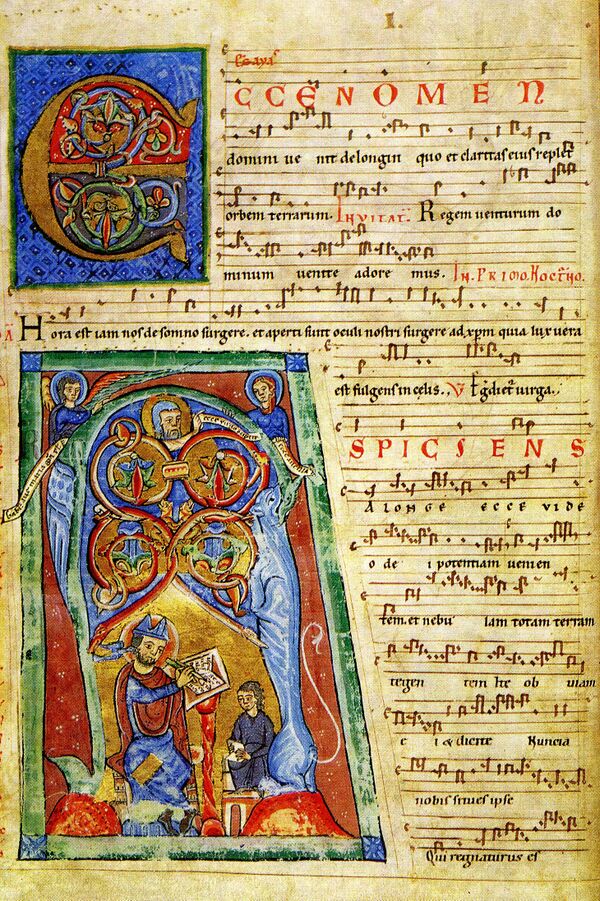 I.
CCE NOMEN
domini ue nit delongin quo et claritas eius replet
orbem terrarum. Inuitat. Regem uenturum do
minum uenite adore mus. In. Primo. Noct.
Hora est iam nos de somno surgere. et aperti sunt oculi nostri surgere ad xpm quia lux uera
est fulgens in celis. V Egrediet uirga.
SPICIENS
A LONGE ECCE VIDE
o de i potentiam uenien
tem et nebu lam totam terram
tegen tem Ite ob uiam
e i & dicite Nuncia
nobis si tu es ipse
Qui regnaturus es